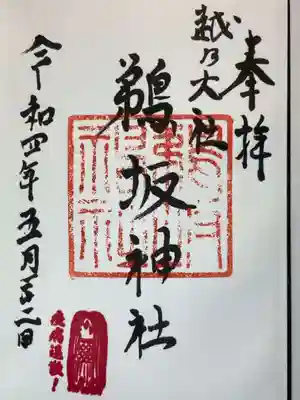 奉拝
越乃大社
鵜坂神社
令和四年五月二日
疫病退散！